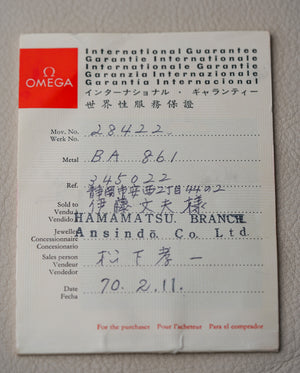 Ω
OMEGA
International Guarantee
Garantie Internationale
Internationale Garantie
Garanzia Internazionale
Garantía Internacional
インターナショナル・ギャランティー
世界性服務保證
Mov. No.
Werk No.
28422
Metal
BA 861
Ref.
345022
静岡市安西2丁目44の2
Sold to
Vendu
Vendido
伊藤文夫様
HAMAMATSU BRANCH
Jeweller
Concessionnaire
Concesionario
Ansindō Co. Ltd.
Sales person
Vendeur
Vendedor
松下孝一
Date
Fecha
70. 2. 11.
For the purchaser Pour l'acheteur Para el comprador